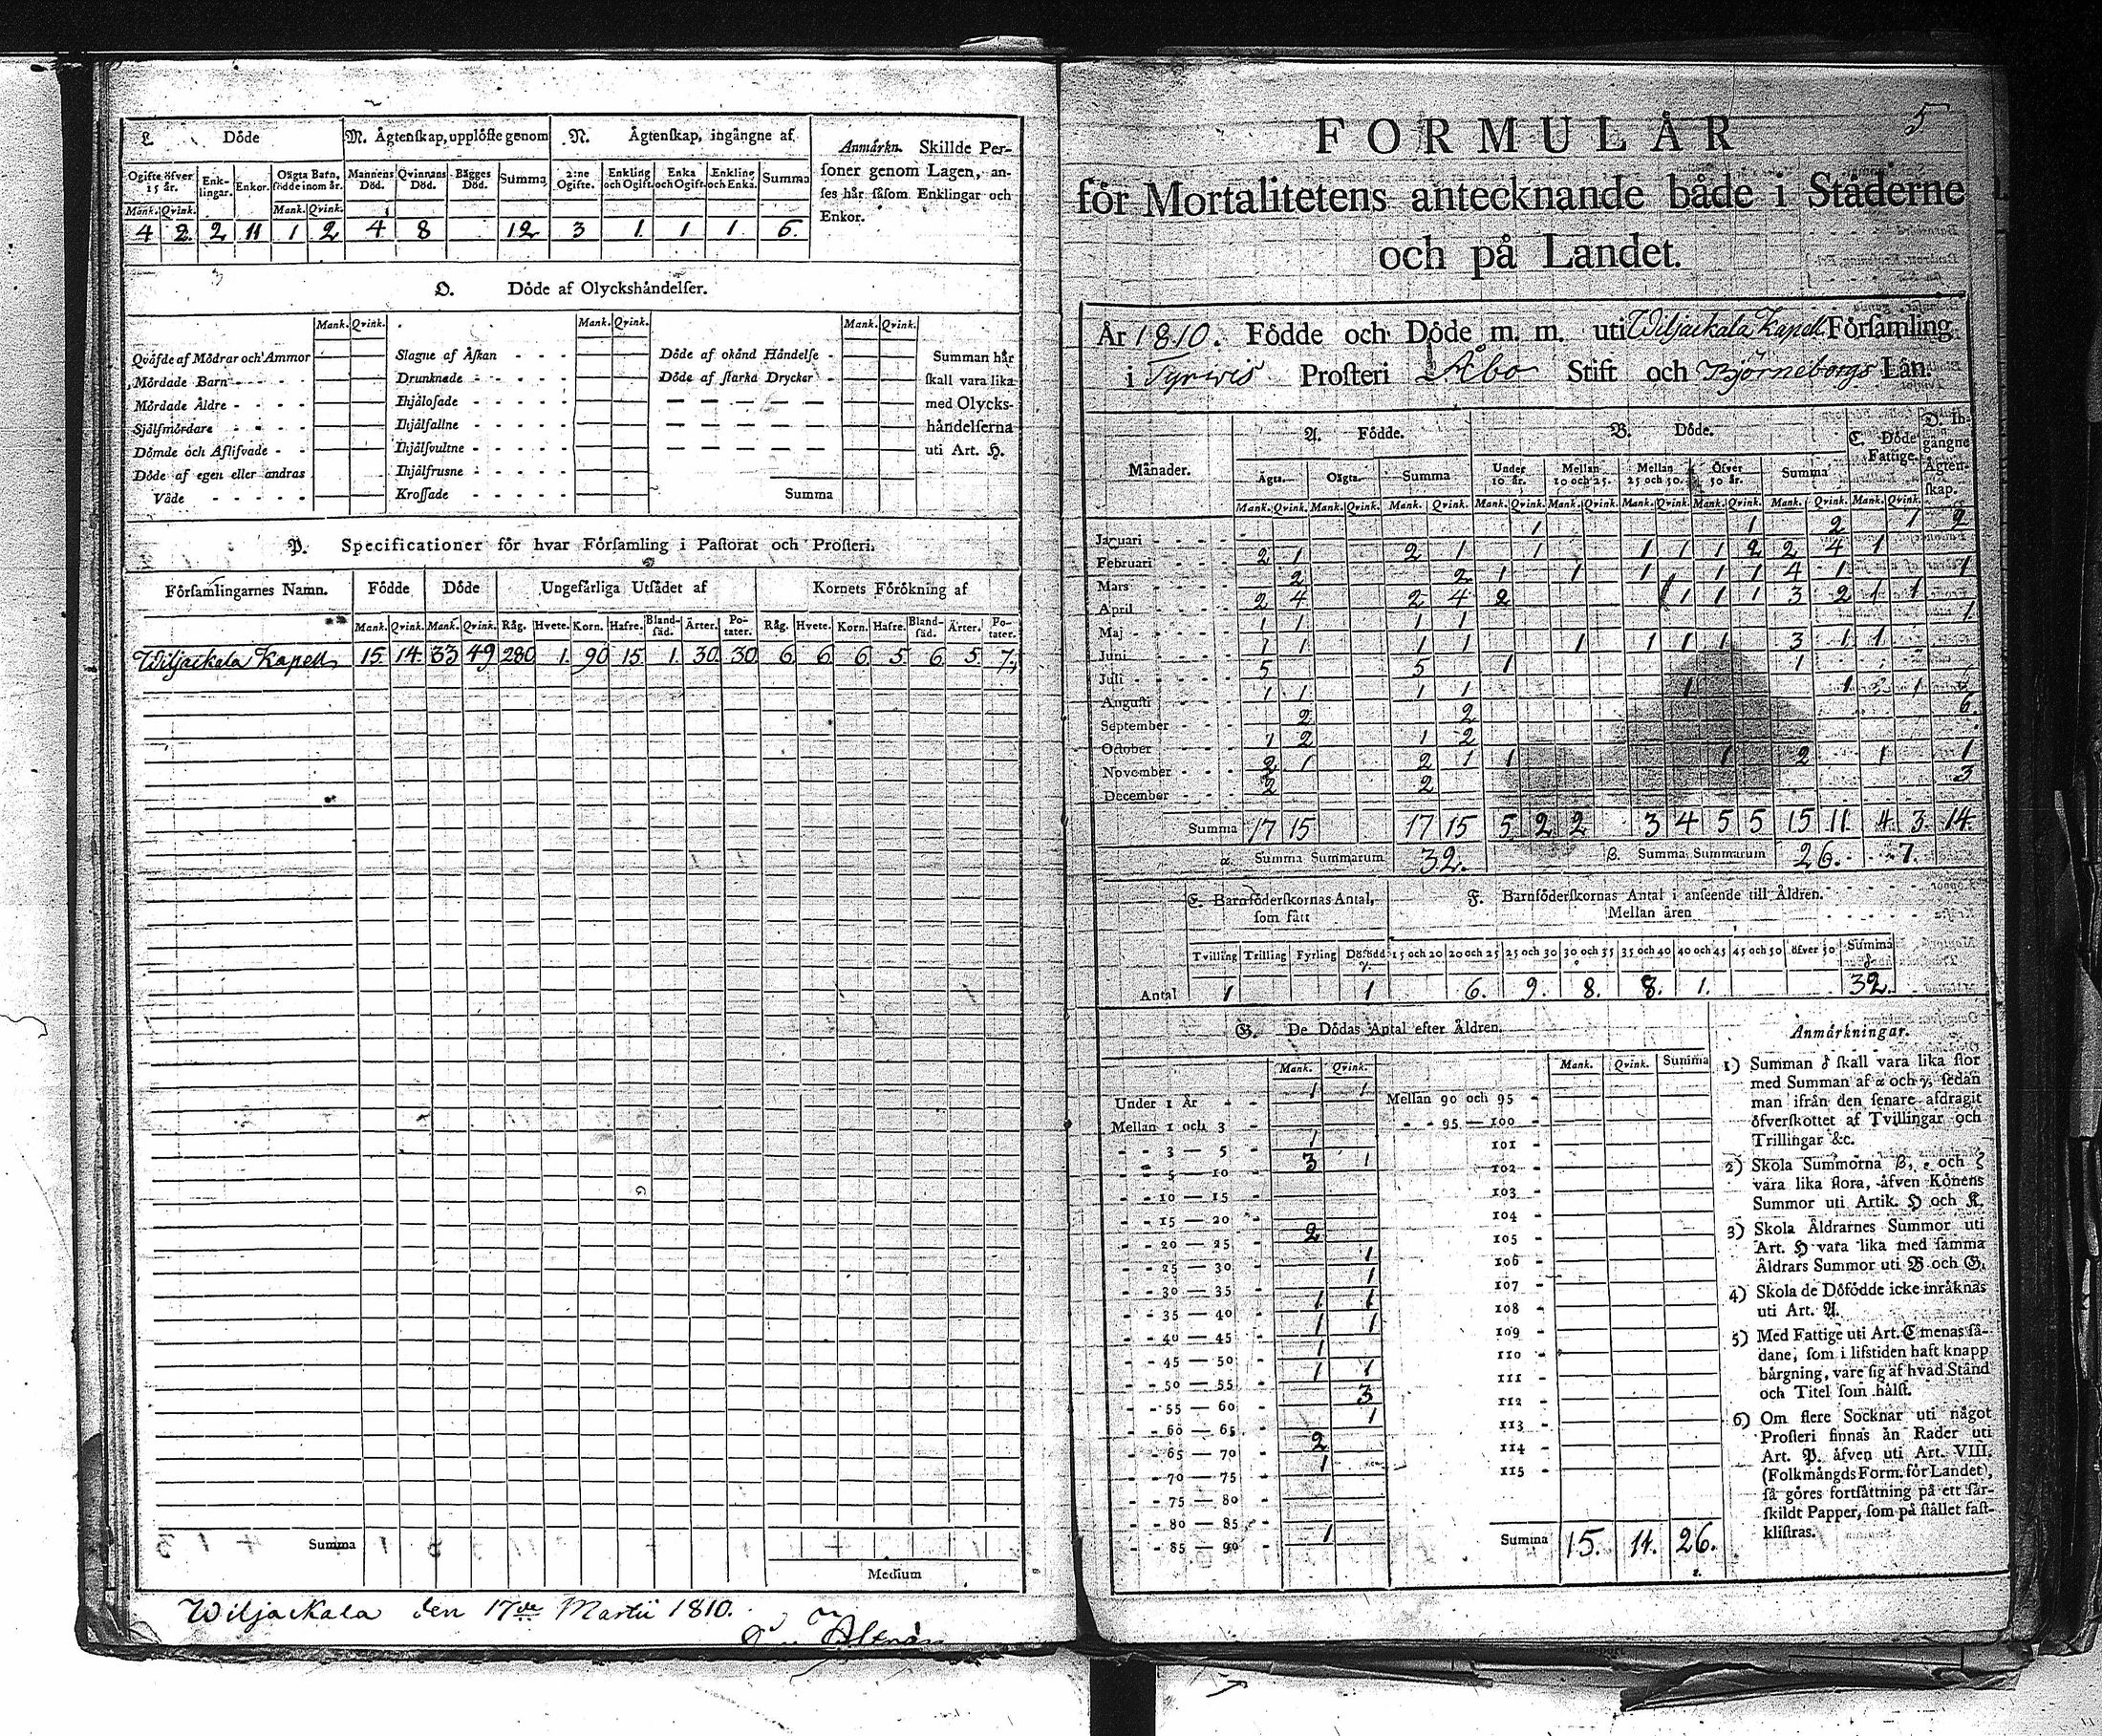 L. Döde
M. Ägtenskap, upplöste genom
N. Ägtenskap, ingångne af
Anmärkn. Skillde Per-
soner genom Lagen, an-
ses här såsom Enklingar och
Enkor.
Ogifte öfver 15 år. Enk-lingar. Enkor. Oägta Barn, födde inom år. Mannens Död. Qvinnans Död. Bägges Död. Summa 2:ne Ogifte. Enkling och Ogift. Enka och Ogift. Enkling och Enka. Summa
Mank. Qvink. Mank. Qvink.
4 2 2 11 1 2 4 8 12 3 1 1 1 6.
O. Döde af Olyckshändelser.
Mank. Qvink. Mank. Qvink. Mank. Qvink.
Qväfde af Mödrar och Ammor Slagne af Åskan - - - Döde af okänd Händelse - Summan här
Mördade Barn - - - - Drunknade - - - - Döde af starka Drycker - skall vara lika
Mördade Äldre - - - - Ihjälosade - - - - med Olycks-
Sjålfmördare - - - - Ihjälfallne - - - - händelserna
Dömde och Aflifvade - - Ihjälsvultne - - - - uti Art. H.
Döde af egen eller andras Ihjälfrusne - - - -
Våde - - - - - Krossade - - - - - Summa
P. Specificationer för hvar Församling i Pastorat och Prosteri.
Församlingarnes Namn. Födde Döde Ungefärliga Utsädet af Kornets Förökning af
Mank. Qvink. Mank. Qvink. Råg. Hvete. Korn. Hafre. Bland-säd. Ärter. Po-tater. Råg. Hvete. Korn. Hafre. Bland-säd. Ärter. Po-tater.
Wiljackala Kapell 15 14. 33 49 280 1. 90 15 1. 30 30 6 6 6 5 6 5 7.
Summa
Medium
Wiljackala den 17de Martii 1810.
5
FORMULÄR
för Mortalitetens antecknande både i Städerne
och på Landet.
År 1810. Födde och Döde m. m. uti Wiljackala Kapell Församling
i Tyrwis Prosteri Åbo Stift och Björneborgs Län.
Månader. A. Födde. B. Döde. C. Döde Fattige. D. In-gångne Ägten-skap.
Ägta. Oägta. Summa Under 10 år. Mellan 10 och 25. Mellan 25 och 50. Öfver 50 år. Summa
Mank. Qvink. Mank. Qvink. Mank. Qvink. Mank. Qvink. Mank. Qvink. Mank. Qvink. Mank. Qvink. Mank. Qvink. Mank. Qvink.
Januari - - - - 1 1 2 1 2
Februari - - - 2 1 2 1 1 1 1 1 2 2 4 1
Mars - - - - 2 2 1 1 1 1 1 4 1 1
April - - - - 2 4 2 4 2 1 1 1 1 3 2 1 1
Maj - - - - 1 1 1 1 1.
Juni - - - - 1 1 1 1 1 1 1 1 3 1 1
Juli - - - - 5 5 1 1
Augusti - - - 1 1 1 1 1 1 1
September - - - 2 2 6
October - - - 1 2 1 2
November - - - 2 1 2 1 1 1 2 1 1
December - - - 2 2 3
Summa 17 15 17 15 5 2 2 3 4 5 5 15 11. 4. 3. 14.
α. Summa Summarum 32. β. Summa Summarum 26. 7.
E. Barnföderskornas Antal, som fått
F. Barnföderskornas Antal i anseende till Åldren.
Mellan åren
Tvilling Trilling Fyrling Döfödd γ. 15 och 20 20 och 25 25 och 30 30 och 35 35 och 40 40 och 45 45 och 50 öfver 50 Summa δ
Antal 1 1 6. 9. 8. 8. 1. 32.
G. De Dödas Antal efter Åldren.
Mank. Qvink. Mank. Qvink. Summa
Under 1 År - - 1 1 Mellan 90 och 95 -
Mellan 1 och 3 - - - 95 — 100 -
- - 3 — 5 - 1 101 -
- - 5 — 10 - 3 1 102 -
- - 10 — 15 - 103 -
- - 15 — 20 - 104 -
- - 20 — 25 - 2 105 -
- - 25 — 30 - 1 106 -
- - 30 — 35 - 1 107 -
- - 35 — 40 - 1 1 108 -
- - 40 — 45 - 1 1 109 -
- - 45 — 50 - 1 110 -
- - 50 — 55 - 1 1 111 -
- - 55 — 60 - 3 112 -
- - 60 — 65 - 1 113 -
- - 65 — 70 - 2 114 -
- - 70 — 75 - 1 115 -
- - 75 — 80 -
- - 80 — 85 -
- - 85 — 90 - 1
Summa 15. 11. 26.
Anmärkningar.
1) Summan δ skall vara lika stor
med Summan af α och γ, sedan
man ifrån den senare afdragit
öfverskottet af Tvillingar och
Trillingar &c.
2) Skola Summorna β, ε och ζ
vara lika stora, äfven Könens
Summor uti Artik. H och K.
3) Skola Åldrarnes Summor uti
Art. H vara lika med samma
Åldrars Summor uti B och G.
4) Skola de Döfödde icke inräknas
uti Art. A.
5) Med Fattige uti Art. C menas så-
dane, som i lifstiden haft knapp
bärgning, vare sig af hvad Stånd
och Titel som hälst.
6) Om flere Socknar uti något
Prosteri finnas än Rader uti
Art. P. äfven uti Art. VIII.
(Folkmängds Form. för Landet),
så göres fortsättning på ett sär-
skildt Papper, som på stället fast-
klistras.